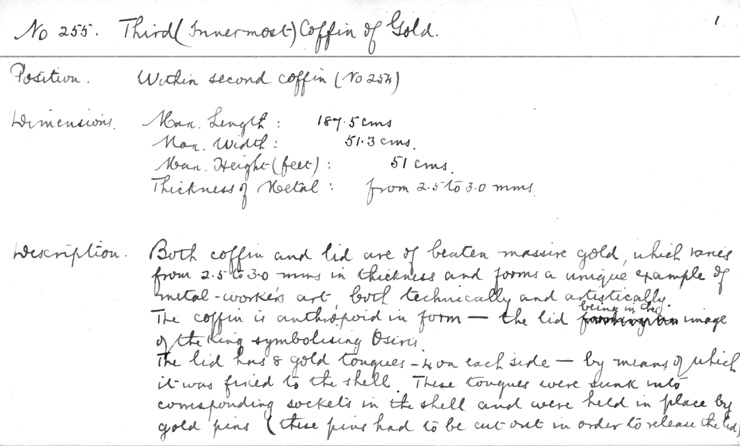 No 255. Third (Innermost) Coffin of Gold. 1
Position. Within second coffin (No 254)
Dimensions. Max. Length: 187.5 cms
Max. Width: 51.3 cms.
Max. Height (feet): 51 cms.
Thickness of Metal: from 2.5 to 3.0 mms.
Description. Both coffin and lid are of beaten massive gold, which varies
from 2.5 to 3.0 mms in thickness and forms a unique example of
metal-worker's art, both technically and artistically.
The coffin is anthropoid in form — the lid being in the image
of the King symbolising Osiris.
The lid has 8 gold tongues - 4 on each side — by means of which
it was fixed to the shell. These tongues were sunk into
corresponding sockets in the shell and were held in place by
gold pins (these pins had to be cut out in order to release the lid)